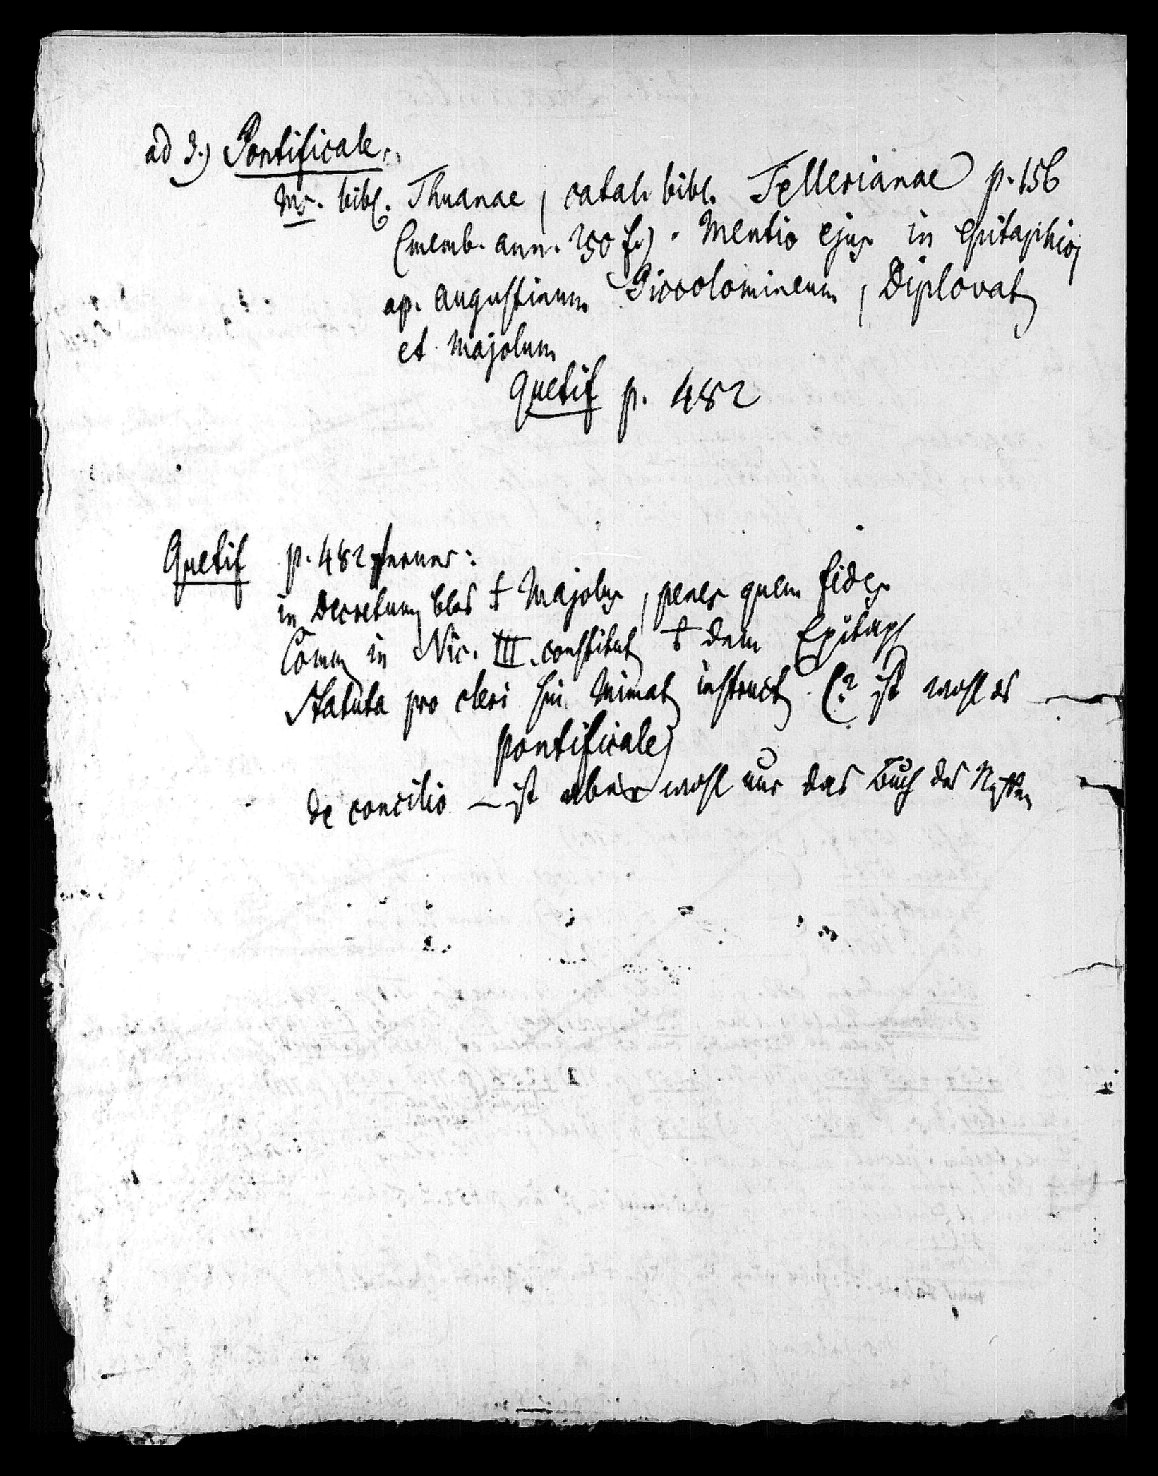 ad 3.) Pontificale.
Ms. bibl. Thuanae, catal. bibl. Tellerianae p. 156
(memb. ann. 250 fr). Mentio ejus in epitaphio,
ap. Augustinum Piccolomineum, Diplovat
et Majolum
Quetif p. 482
Quetif p. 482 ferner:
in Decretum blos Majolus, penes quem fides
Comm in Nic. III. constitut dem Epitaph
Statuta pro cleri sui Mimat instruct (? ist wohl das
pontificale)
de concilio – ist aber wohl nur das Buch des